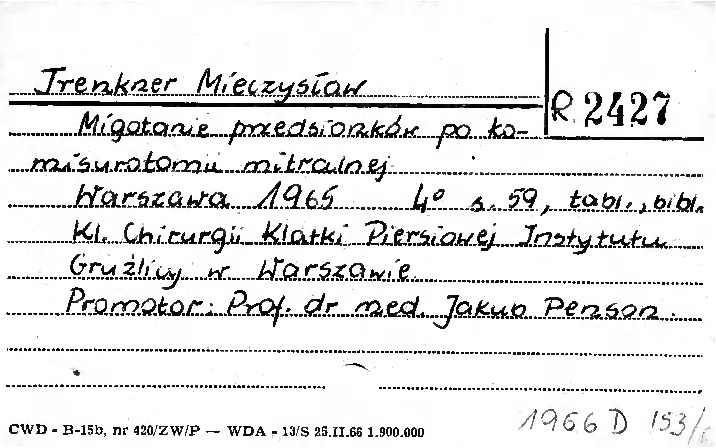 Trenkner Mieczysław
R 2427
Migotanie przedsionków po ko-
misurotomii mitralnej
Warszawa 1965 4° s. 59, tabl., bibl.
Kl. Chirurgii Klatki Piersiowej Instytutu
Gruźlicy w Warszawie
Promotor: Prof. dr med. Jakub Penson.
CWD - B-15b, nr 420/ZW/P — WDA - 13/S 25.II.66 1.900.000
1966 D 153/